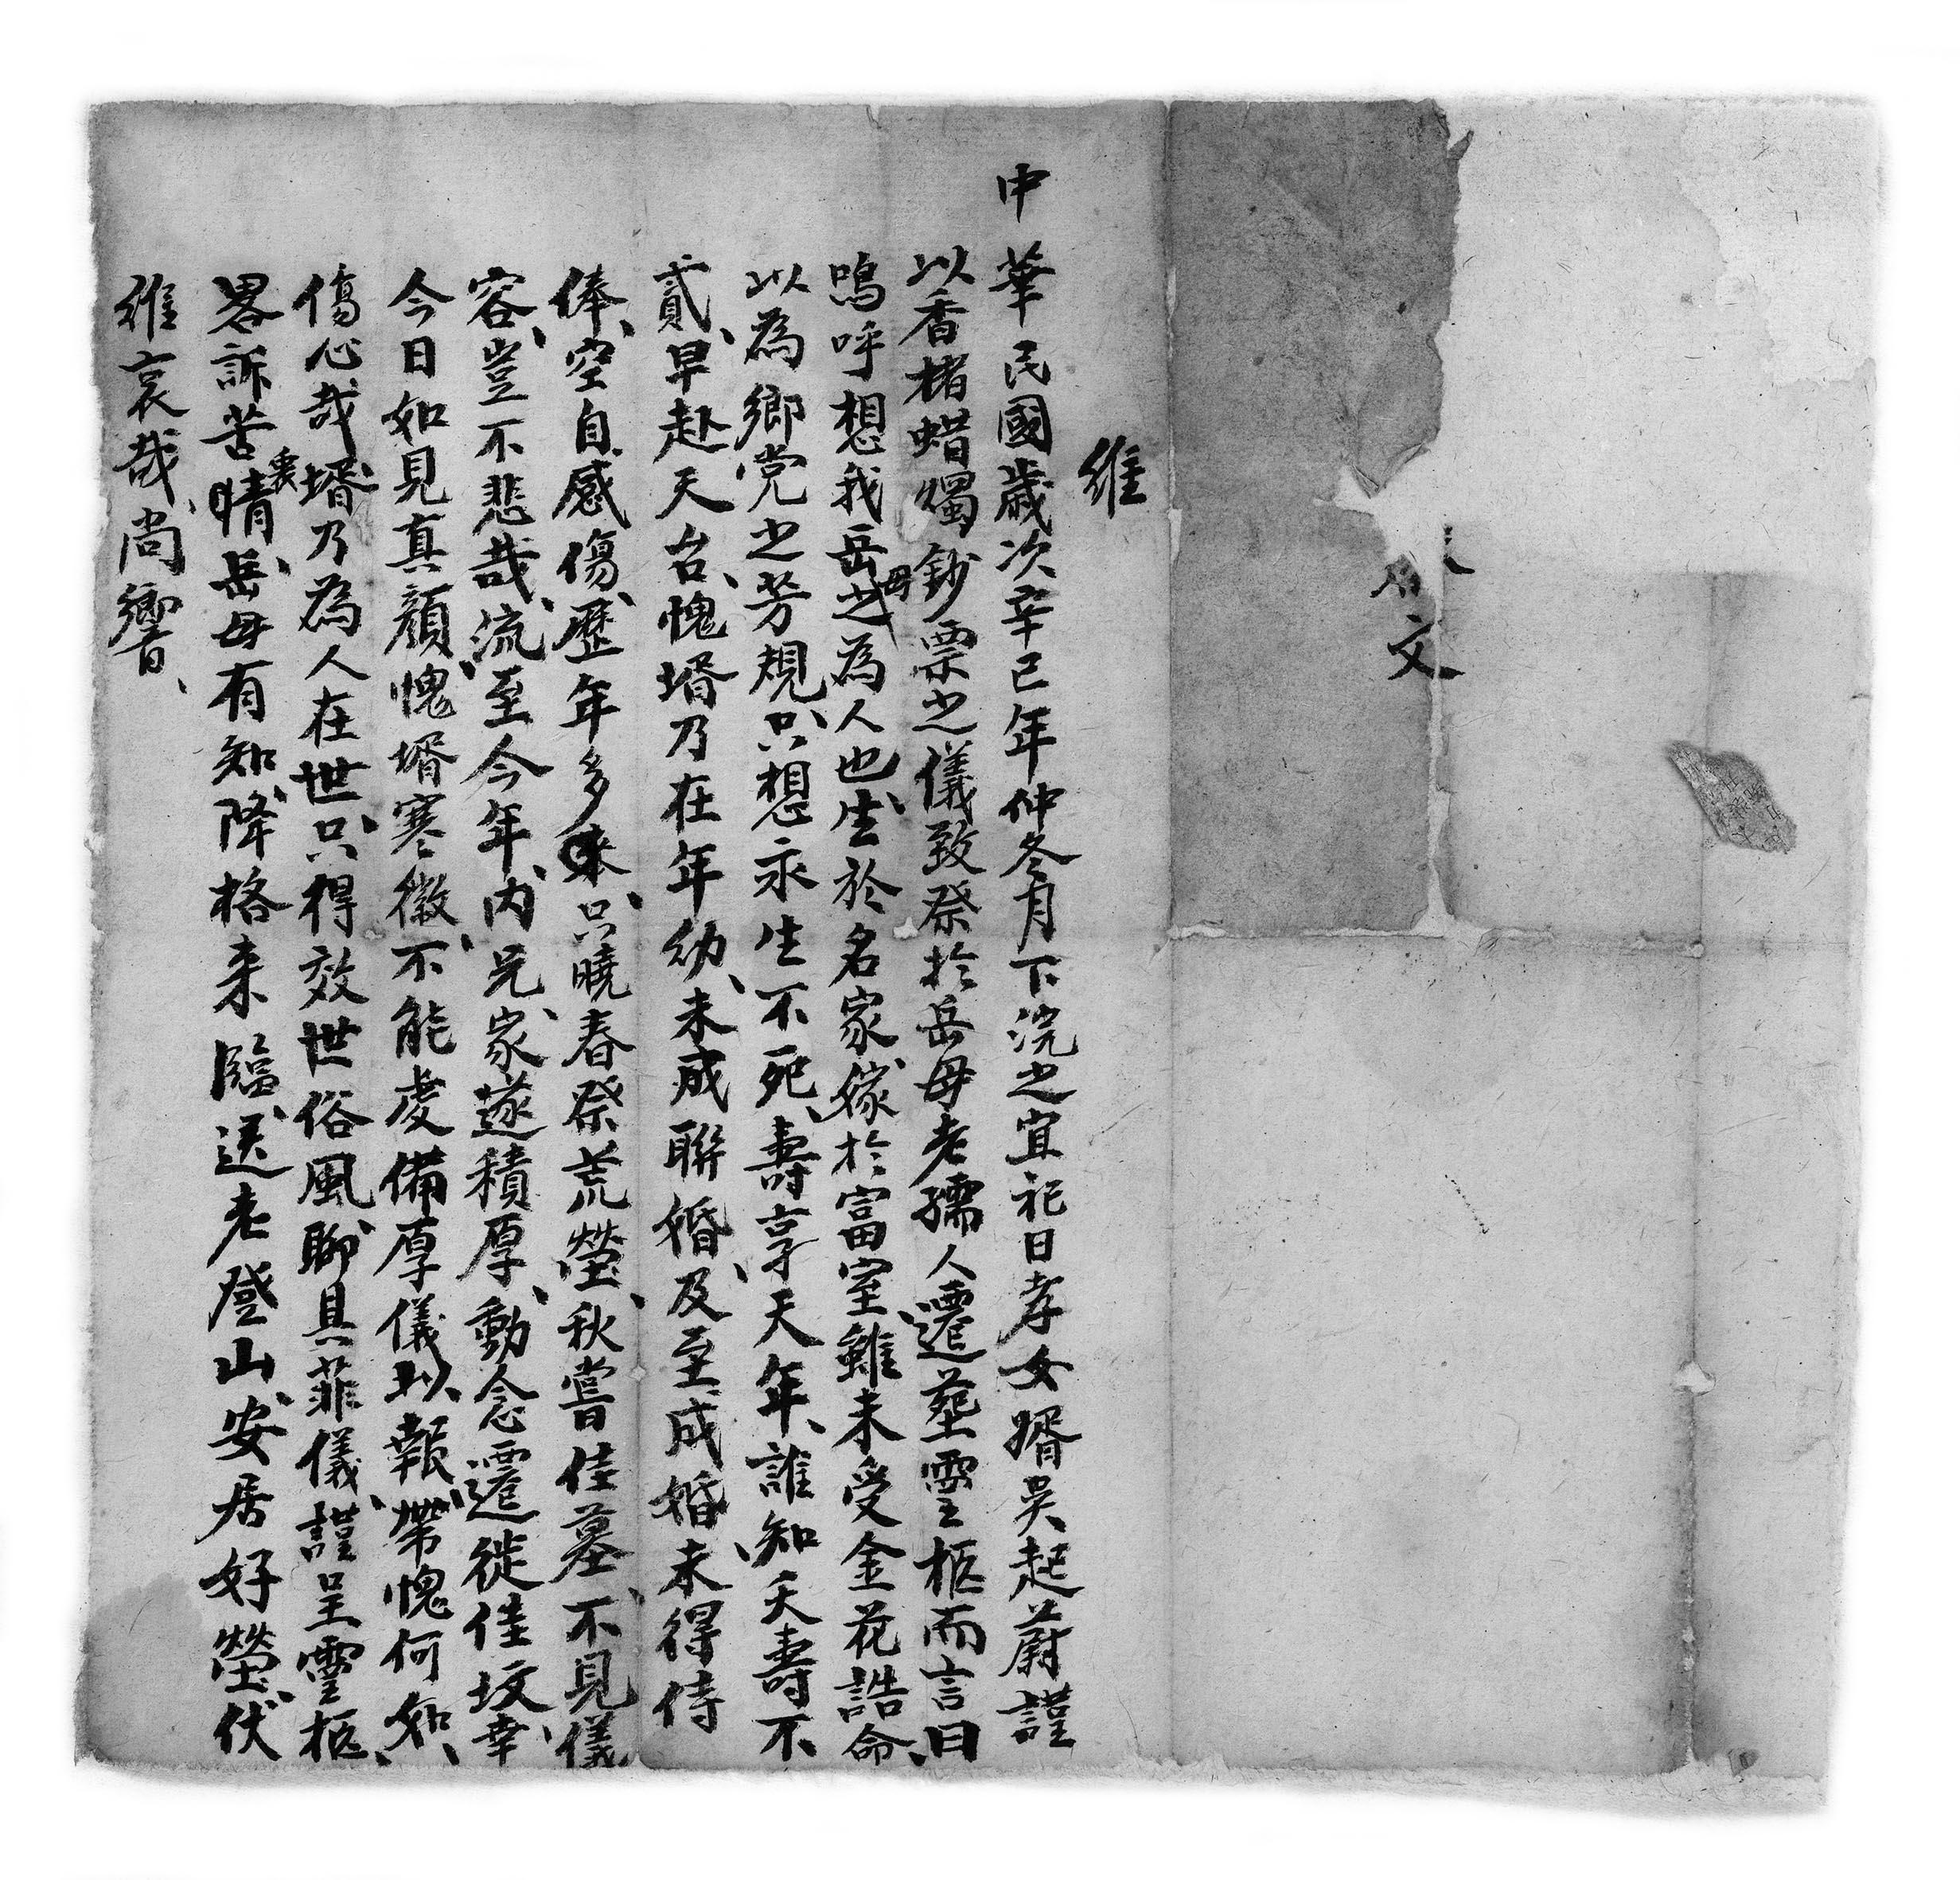 文
維
中華民國歲次辛巳年仲冬月下浣之宜祀日孝女婿吳起蔚謹
以香楮蜡燭鈔票之儀致祭於岳母老孺人遷塟靈柩而言曰
嗚呼想我岳母之為人也生於名家嫁於富室雖未受金花誥命、
以為鄉党之芳規、只想永生不死、壽享天年、誰知夭壽不
貳、早赴天台、愧壻乃在年幼、未成聯婚、及至成婚、未得侍
俸、空自感傷、歷年多來、只曉春祭荒塋、秋嘗佳墓、不見儀
容、豈不悲哉、流至今年、內兄家遂積厚、動念遷徙佳坟、幸
今日如見真顏、愧壻寒微、不能虔備厚儀以報、帶愧何如、
傷心哉、壻乃為人在世、只得效世俗風、聊具菲儀、謹呈靈柩、
畧訴苦情裏、岳母有知、降格来臨、送老登山、安居好塋、伏
維哀哉、尚響、